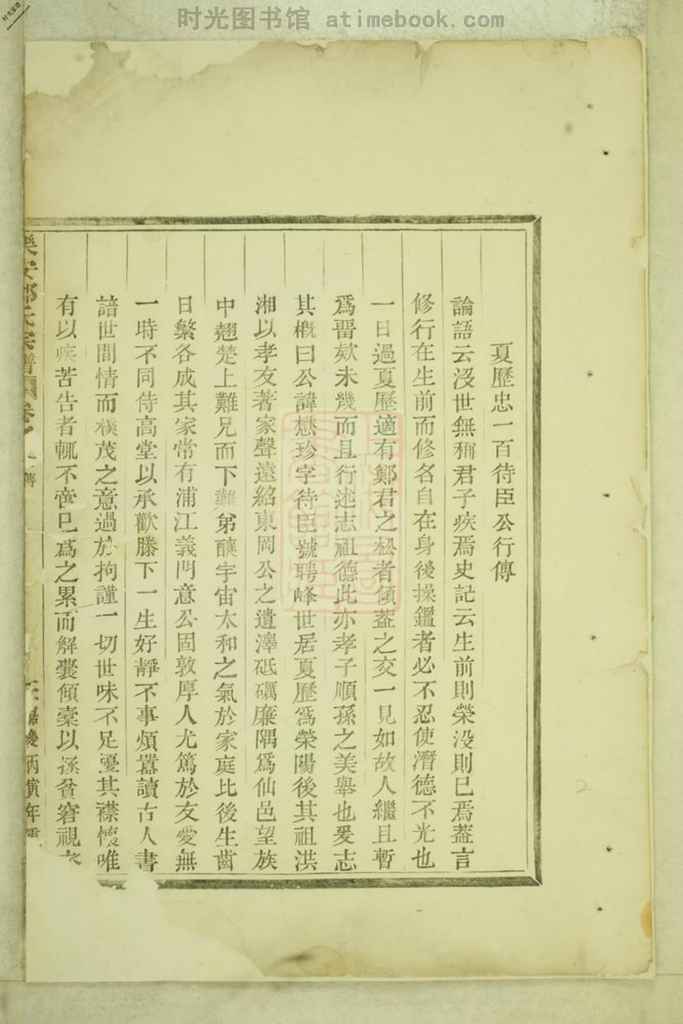 时光图书馆 atimebook.com
夏歷忠一百待臣公行傳
論語云沒世無稱君子疾焉史記云生前則榮沒則已焉葢言
修行在生前而修名自在身後操鑑者必不忍使潛德不光也
一日過夏歷適有鄭君之 者傾葢之交一見如故人繼且暫
爲畱欵未幾而且行述志祖德此亦孝子順孫之美舉也爰志
其槪曰公諱懋珍字待臣號聘峰世居夏歷爲榮陽後其祖洪
湘以孝友著家聲遠紹東岡公之遺澤砥礪廉隅爲仙邑望族
中翹楚上難兄而下難弟釀宇宙太和之氣於家庭比後生齒
日繁各成其家常有浦江義門意公固敦厚人尤篤於友愛無
一時不同侍高堂以承歡膝下一生好靜不事煩囂讀古人書
諳世間情而樸茂之意過於拘謹一切世味不足擾其襟懷唯
有以疾苦告者輒不啻已爲之累而解囊傾橐以 貧窘視
樂安鄭氏宗譜 卷 傳
丙寅年